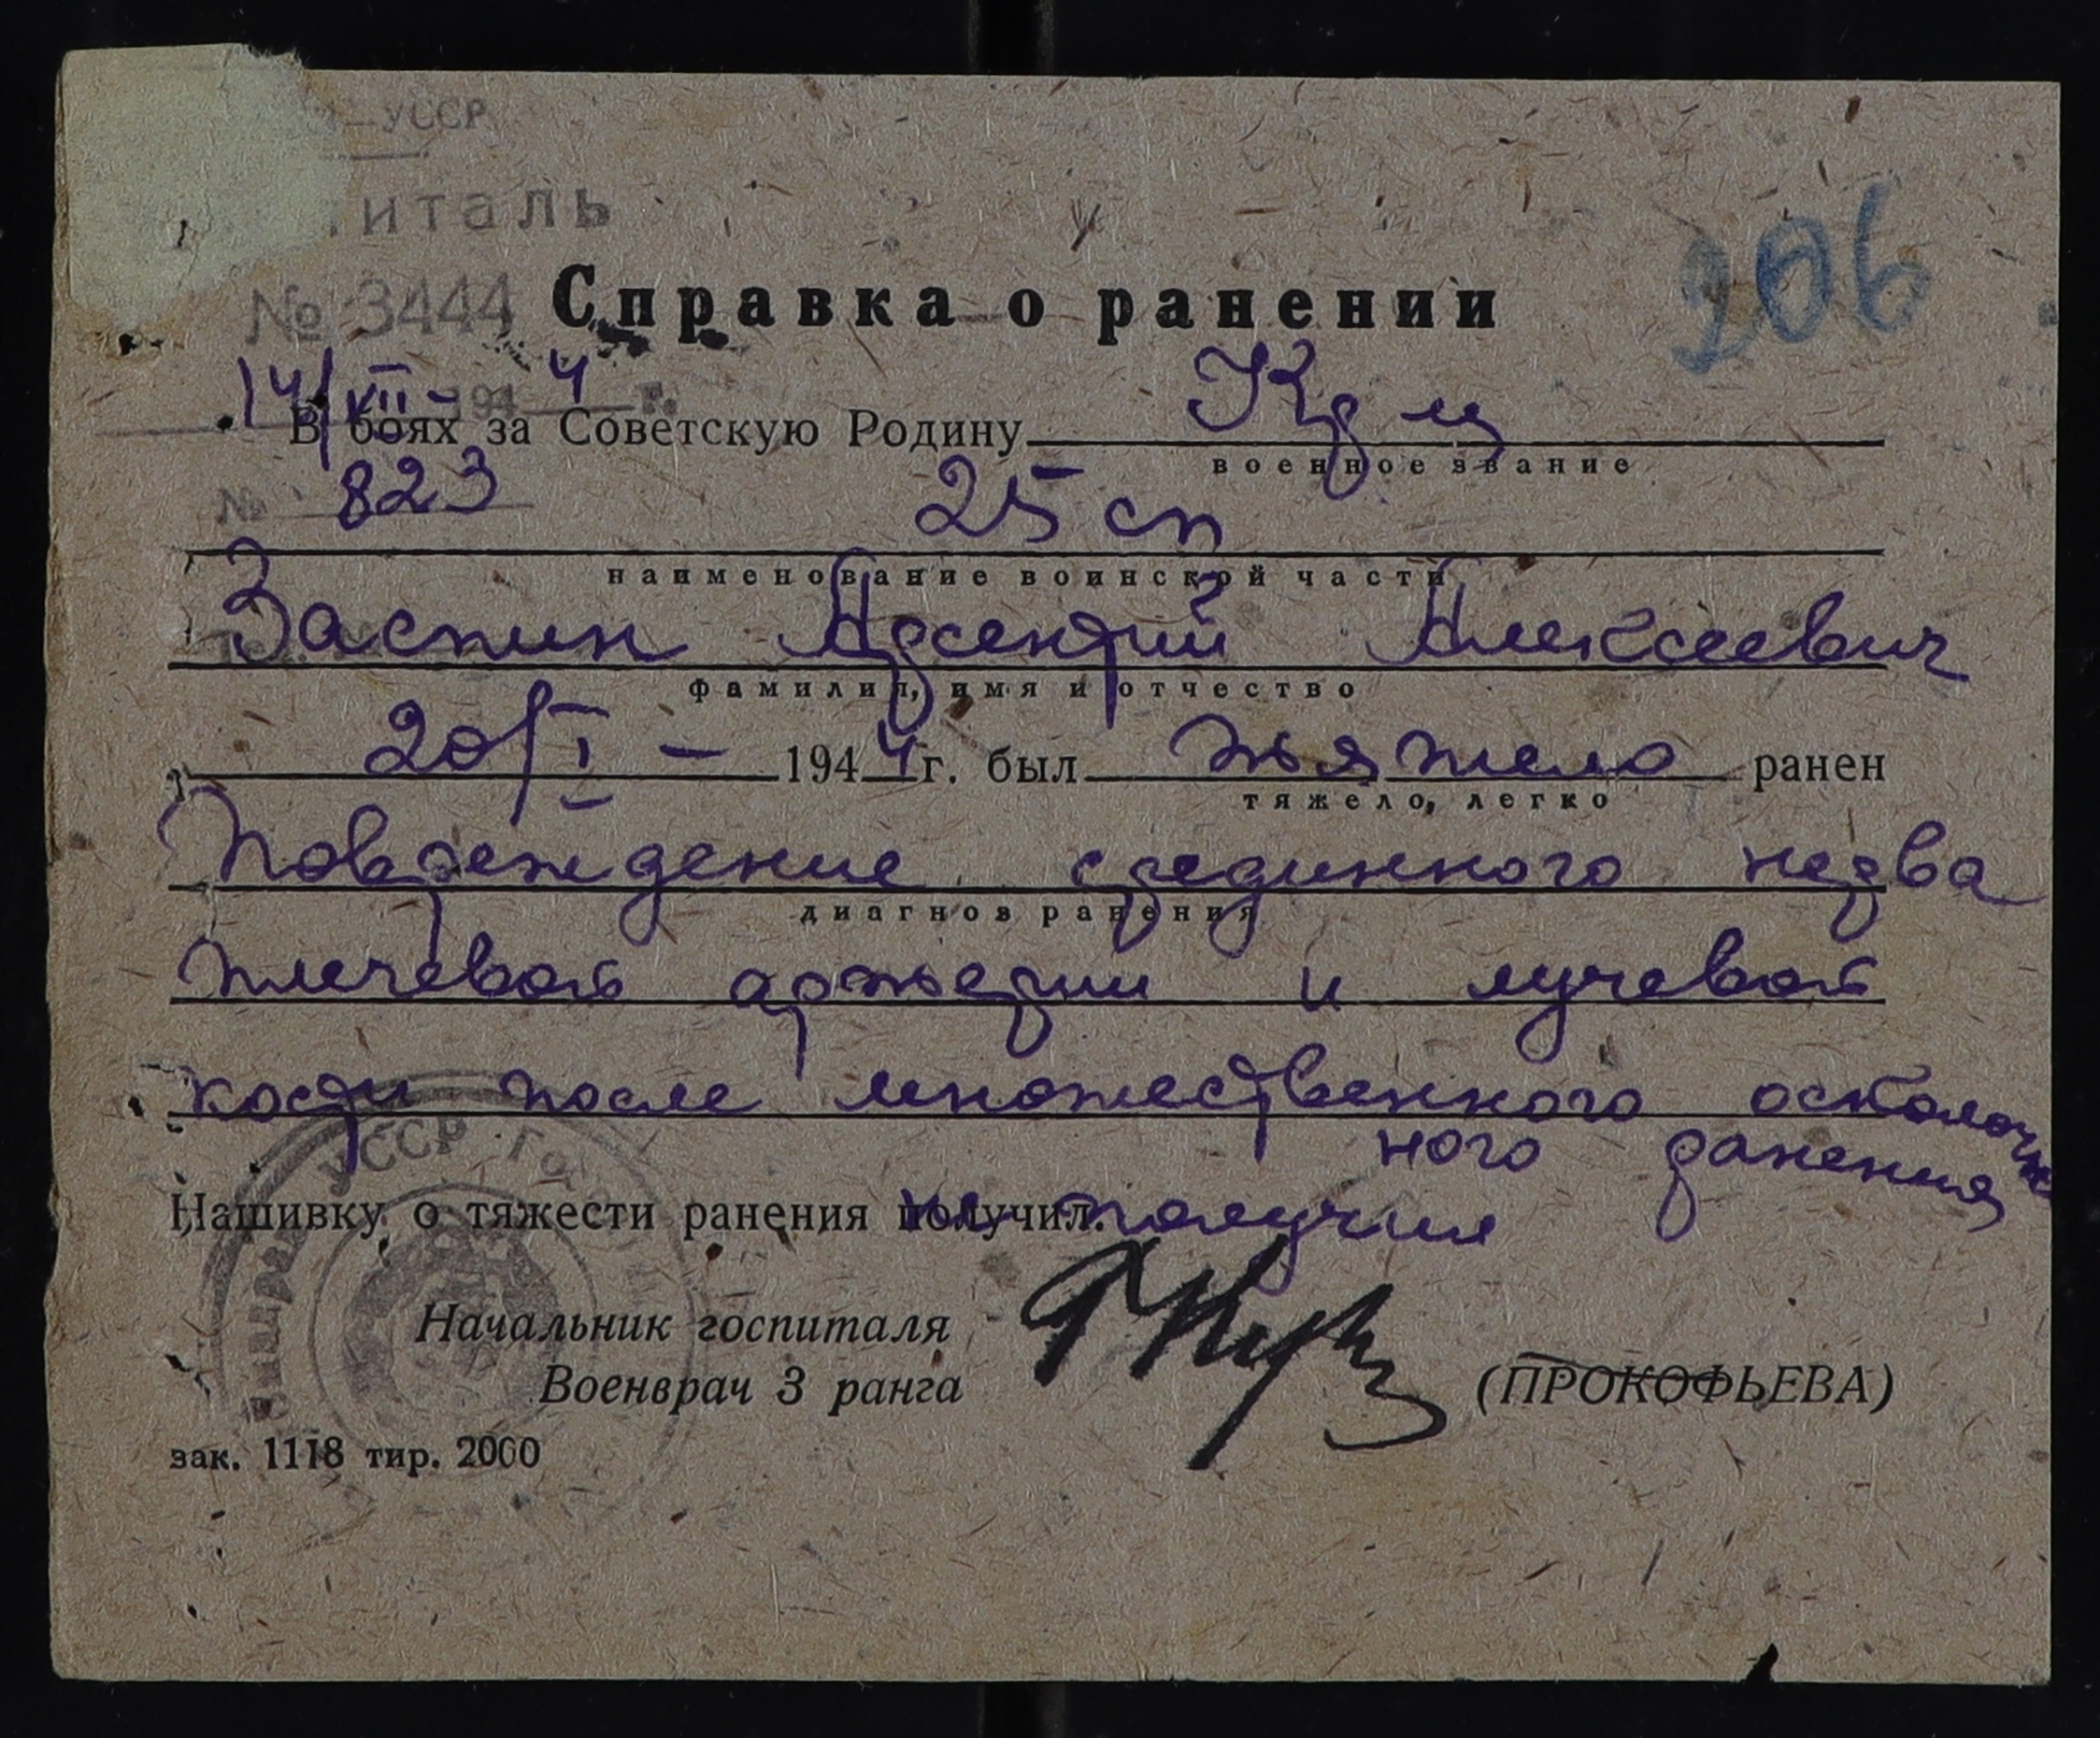 –УССР
италь
№ 3444
206
Справка о ранении
14/VII– 1944 г.
В боях за Советскую Родину Кр-ц
военное звание
№ 823
25 сп
наименование воинской части
Заспин Арсентий Алексеевич
фамилия, имя и отчество
20/I – 1944 г. был тяжело ранен
тяжело, легко
Повреждение срединного нерва
диагноз ранения
плечевой артерии и лучевой
кости после множественного осколоч
ного ранения
Нашивку о тяжести ранения получил. не получил
УССР
Начальник госпиталя
Военврач 3 ранга
(ПРОКОФЬЕВА)
зак. 1118 тир. 2000